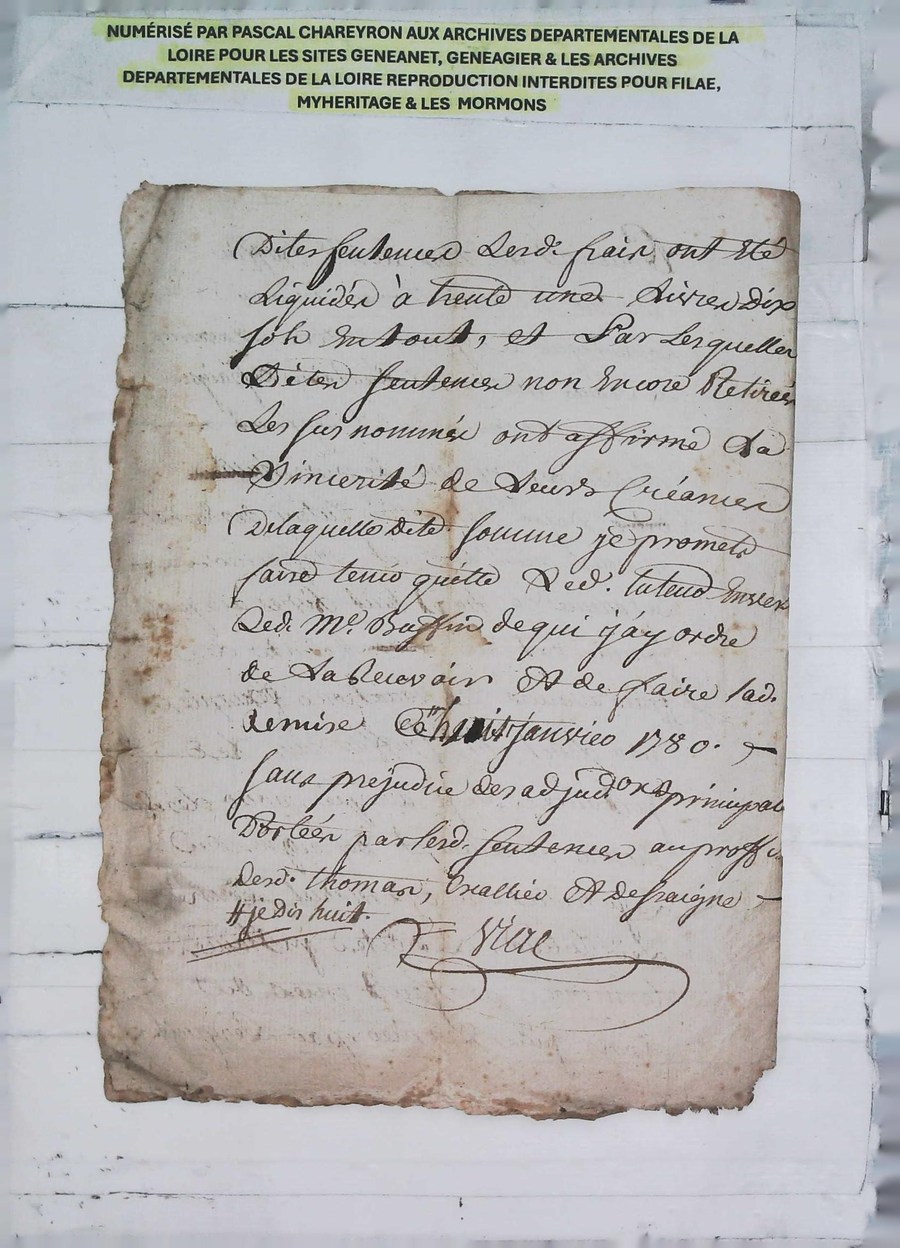 NUMÉRISÉ PAR PASCAL CHAREYRON AUX ARCHIVES DEPARTEMENTALES DE LA
LOIRE POUR LES SITES GENEANET, GENEAGIER & LES ARCHIVES
DEPARTEMENTALES DE LA LOIRE REPRODUCTION INTERDITES POUR FILAE,
MYHERITAGE & LES MORMONS
Dites sentences Lesd. frais ont Eté
Liquidés à trente une Livres Dix
sols En tout, et Par Lesquelles
Dites sentences non Encore Retirées
Les sus nommés ont affirmé La
Sincerité de Leurs Créances
De laquelle Dite somme je promets
faire tenir quitte Led. tuteur Envers
Led. Me. Buffin de qui j'ay ordre
de La Recevoir Et de faire lad.
remise Ce # huit janvier 1780.
sans prejudice des adjudons principales
Portées par lesd. sentences au proffit
desd. thomas, Et de
# je Dis huit.
Viac